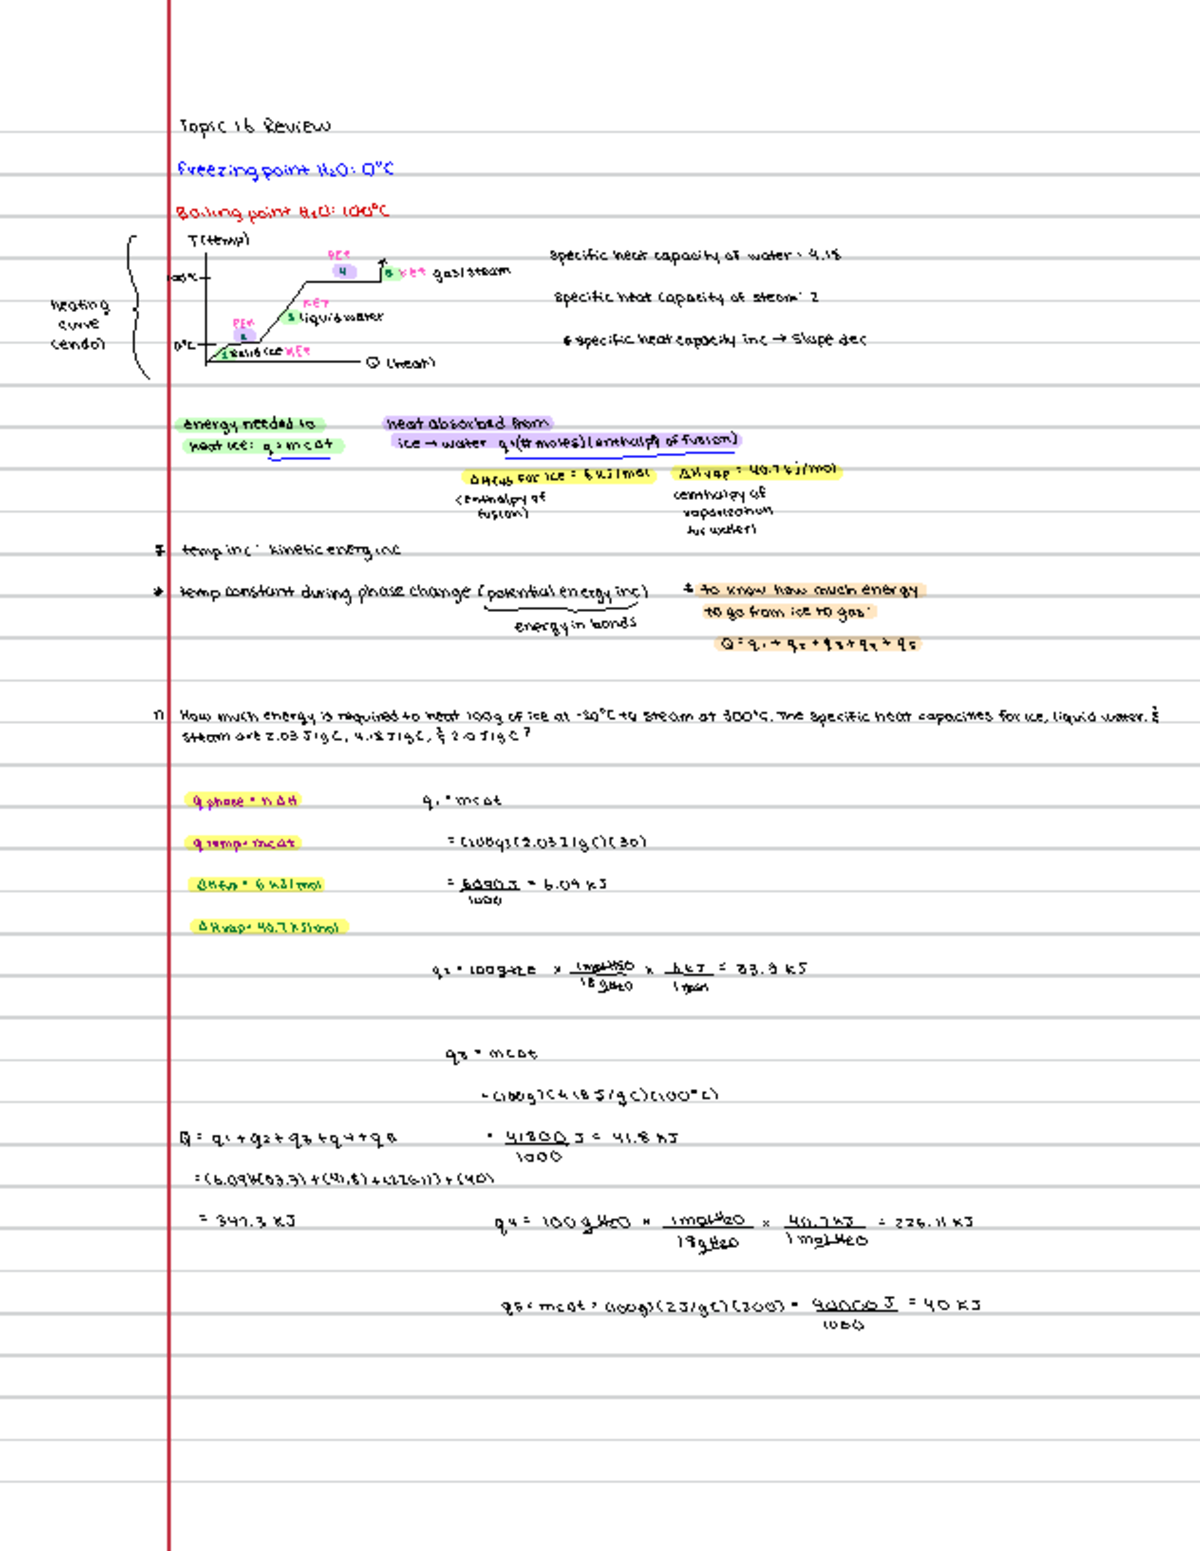 Topic 16 Review
Freezing point H₂O: 0°C
Boiling point H₂O: 100°C
T (temp)
100°C
0°C
heating
curve
(endo)
PE↑
4
5 KE↑ gas/steam
KE↑
3 liquid water
PE↑
2
1 solid ice KE↑
Q (heat)
specific heat capacity of water: 4.18
specific heat capacity of steam: 2
* specific heat capacity inc → slope dec
energy needed to
heat ice: q = mcΔt
heat absorbed from
ice → water q=(# moles)(enthalpy of fusion)
ΔHfus for ice = 6 kJ/mol
(enthalpy of
fusion)
ΔHvap = 40.7 kJ/mol
(enthalpy of
vaporization
for water)
* temp inc: kinetic energ inc
* temp constant during phase change (potential energy inc)
energy in bonds
* to know how much energy
to go from ice to gas:
Q = q₁ + q₂ + q₃ + q₄ + q₅
How much energy is required to heat 100g of ice at -30°C to steam at 300°C. The specific heat capacities for ice, liquid water, &
steam are 2.03 J/gC, 4.18 J/gC, & 2.0 J/gC?
q phase = nΔH
q temp = mcΔt
ΔHfus = 6 kJ/mol
ΔHvap = 40.7 kJ/mol
q₁ = mcΔt
= (100g)(2.03 J/gC)(30)
= 6090 J / 1000 = 6.09 kJ
q₂ = 100g H₂O × 1 mol H₂O / 18 g H₂O × 6 kJ / 1 mol = 33.3 kJ
q₃ = mcΔt
= (100g)(4.18 J/gC)(100°C)
= 41800 J / 1000 = 41.8 kJ
Q = q₁ + q₂ + q₃ + q₄ + q₅
= (6.09)+(33.3)+(41.8)+(226.11)+(40)
= 347.3 kJ
q₄ = 100 g H₂O × 1 mol H₂O / 18g H₂O × 40.7 kJ / 1 mol H₂O = 226.11 kJ
q₅ = mcΔt = (100g)(2J/gC)(200) = 40000 J / 1000 = 40 kJ